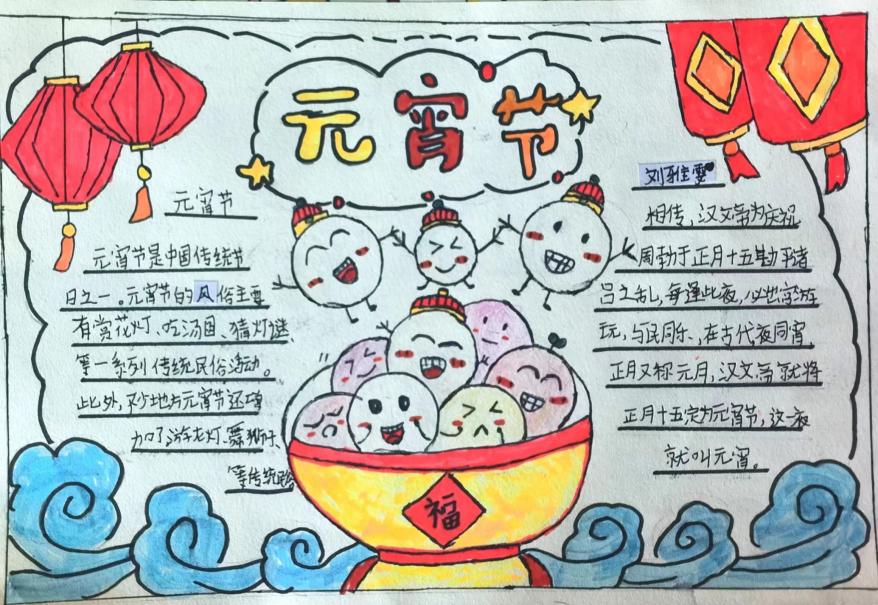 元宵节
元宵节
元宵节是中国传统节
日之一。元宵节的风俗主要
有赏花灯、吃汤圆、猜灯谜、
等一系列传统民俗活动。
此外,不少地方元宵节还增
加了游龙灯、舞狮子、
等传统
刘雅雯
相传,汉文帝为庆祝
周勃于正月十五勘平诸
吕之乱,每逢此夜,必出宫游
玩,与民同乐,在古代夜同宵,
正月又称元月,汉文帝就将
正月十五定为元宵节,这一夜
就叫元宵。
福